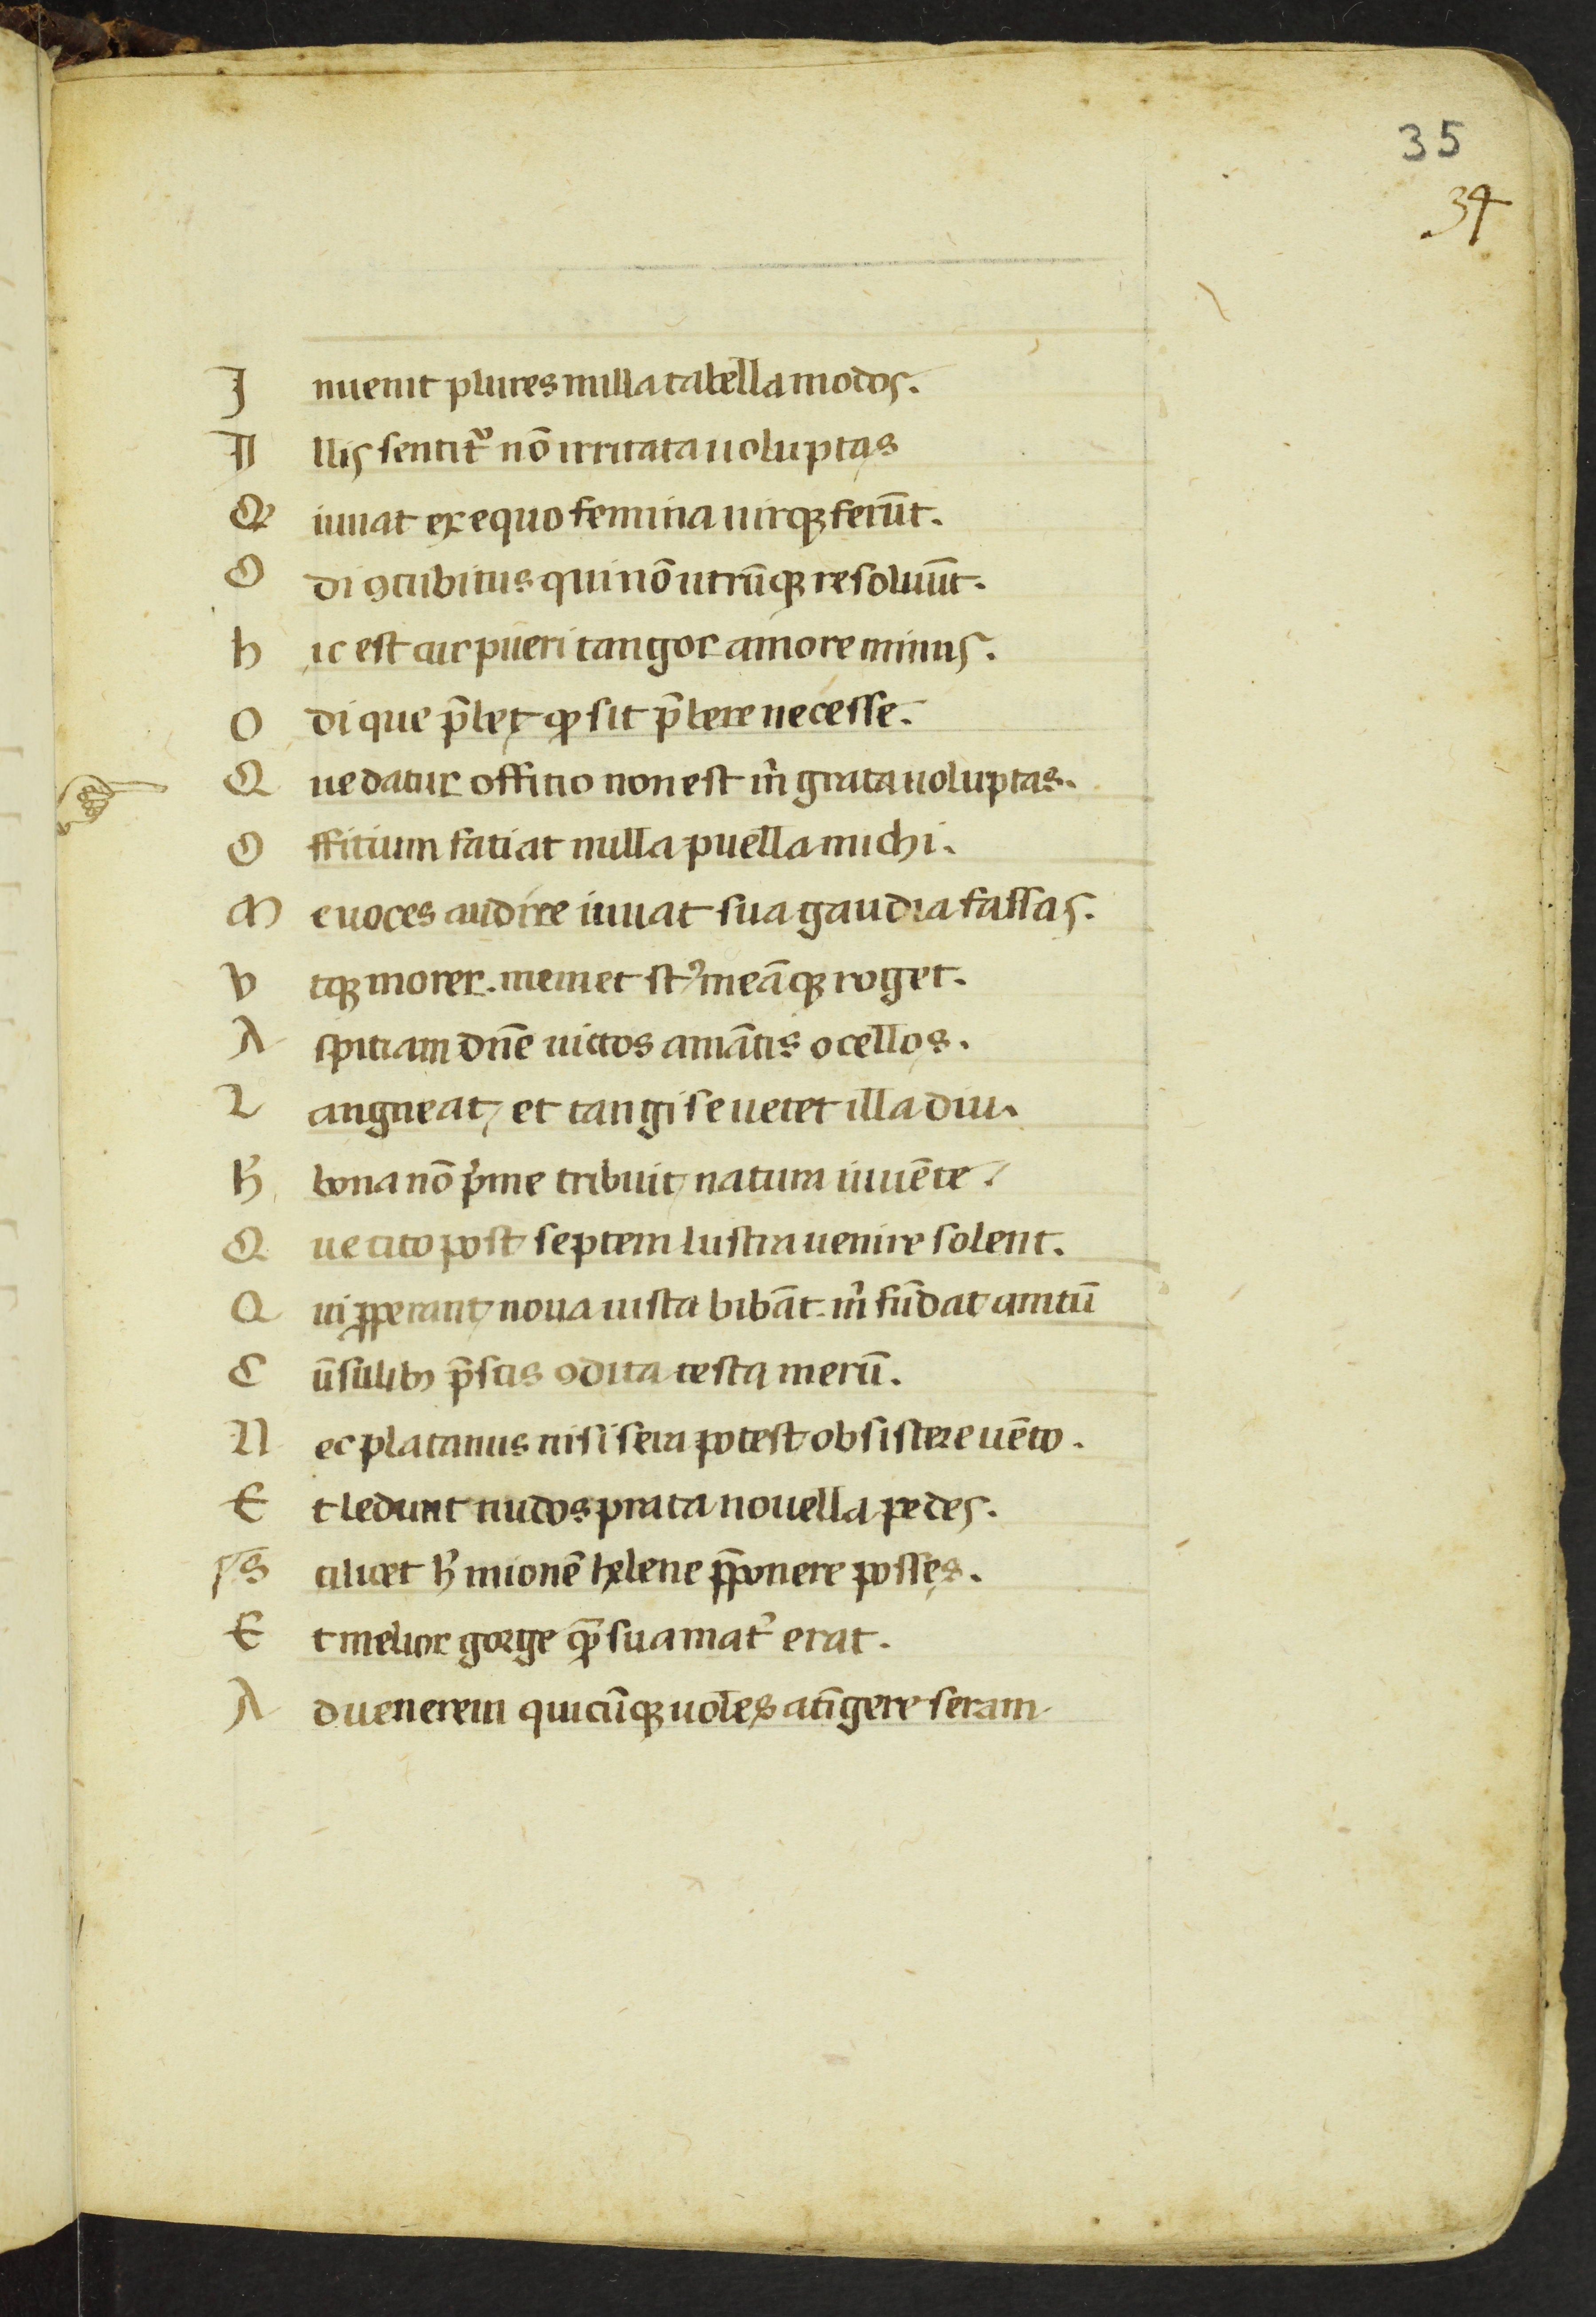 35
34
Inuenit plures nulla tabella modos.
Illis sentit᷑ nō irritata uoluptas
Q iuuat ex equo femina uirqꝫ ferūt.
Odi ꝯcubitus qui nō utrūqꝫ resoluūt.
hic est cur pueri tangor amore minus.
Odi que p̄bet ꝙ sit p̄bere necesse.
Que datur offitio non est m̄ grata uoluptas.
Offitium fatiat nulla puella michi.
Me uoces audire iuuat sua gaudia fassas.
Vtqꝫ morer. meme
t meāqꝫ roget.
Aspitiam dn̄e uictos amātis ocellos.
Langueat, et tangi se uetet illa diu.
h̄ bona nō p̄me tribuit natura iuuēte
Que cito post septem lustra uenire solent.
Qui ꝓperant noua musta bibāt. m̄ fūdat amicū
Cūsulibꝫ p̄scis ꝯdita testa merū.
Nec platanus nisi sera potest obsistere uēto.
Et ledunt nudos prata nouella pedes.
Scilicet h̄mionē helene p̄ponere posses.
Et melior gorge qᷓ sua mat᷑ erat.
Aduenerem quicūqꝫ uoles atīgere seram